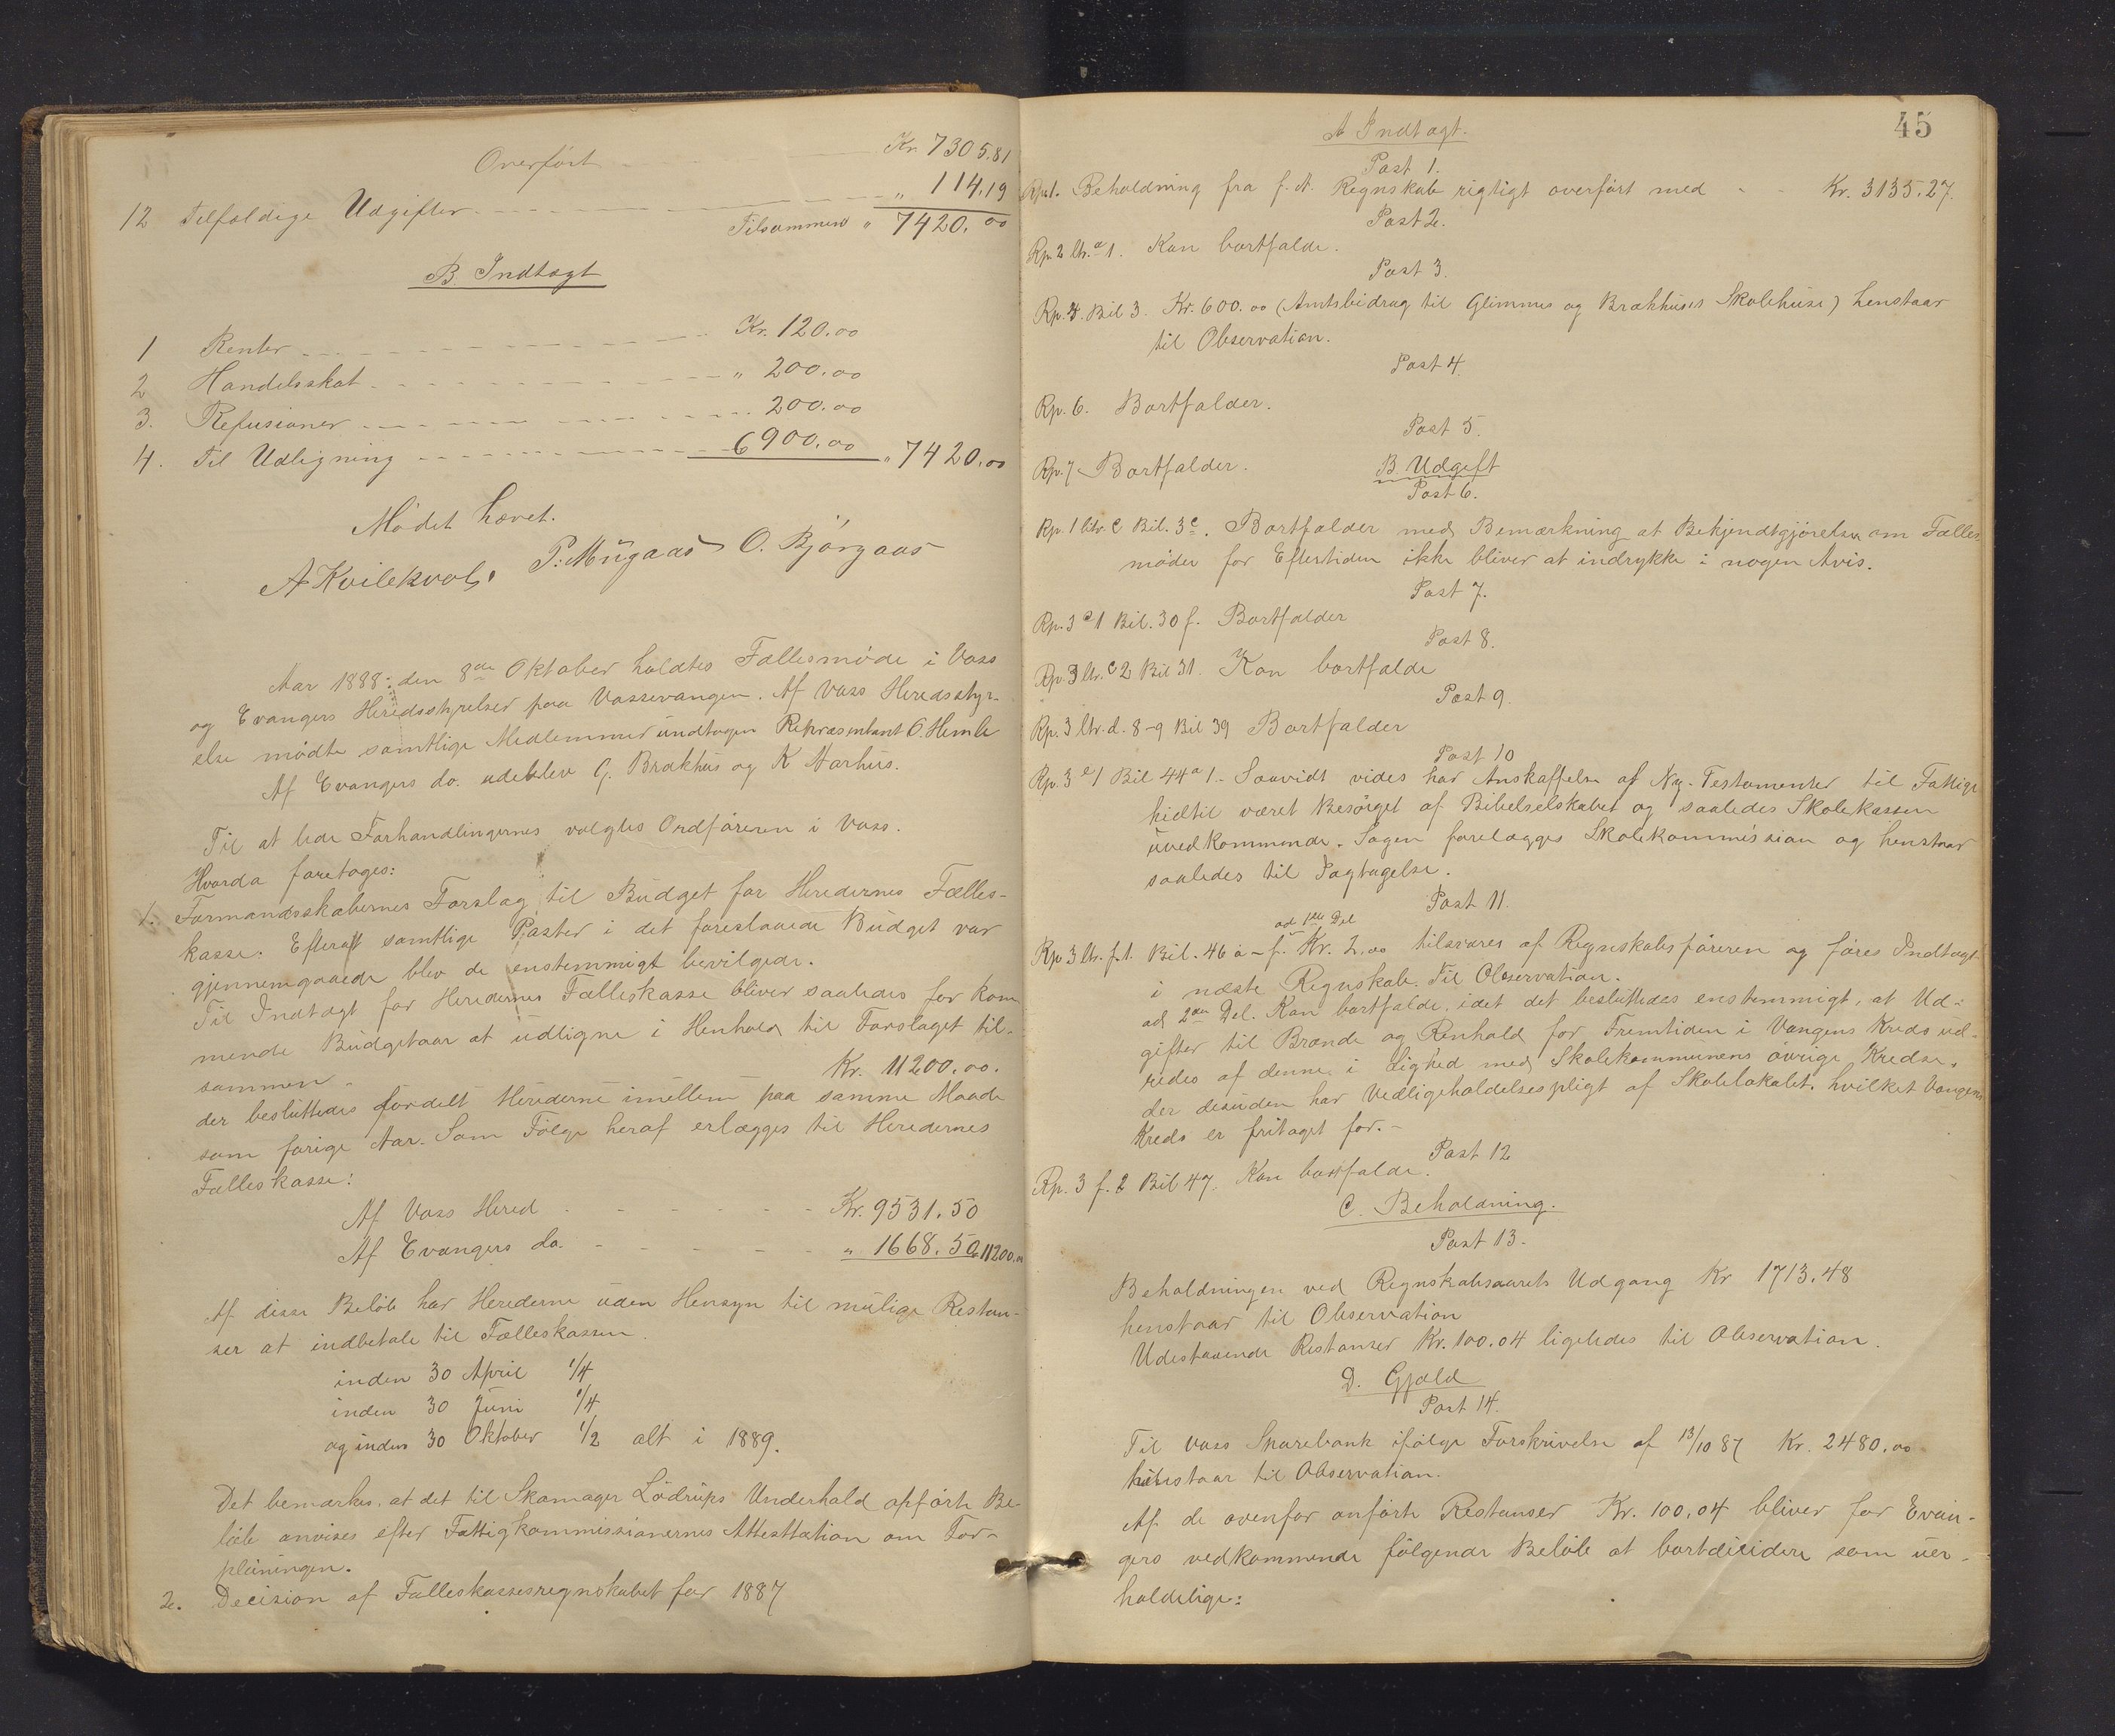 Overført Kr. 7305.81
12 Tilfældige Udgifter " 114.19
Tilsammen " 7420.00
B. Indtægt
1 Renter Kr. 120.00
2 Handelsskat " 200.00
3. Refusioner 200.00
4. Til Udligning 6900.00 " 7420.00
Mødet hævet.
A Kvilekval. P. Mugaas O. Bjørgaas
Aar 1888: den 8de Oktober holdtes Fællesmøde i Voss
og Evangers Heredsstyrelser paa Vossevangen. Af Voss Heredsstyr-
else mødte samtlige Medlemmer undtagen Repræsentant O. Hemle
Af Evangers do. udeblev G. Brækhus og K Aarhus.
Til at lede Forhandlingernes valgtes Ordføreren i Voss.
Hvorda foretoges:
1. Formandsskabernes Forslag til Budget for Heredernes Fælles-
kasse. Efterat samtlige Poster i det foreslaaede Budget var
gjennemgaaede blev de enstemmigt bevilgede.
Til Indtægt for Heredernes Fælleskasse bliver saaledes for kom
mende Budgetaar at udligne i Henhold til Forslaget til-
sammen - Kr. 11200.00.
der besluttedes fordelt Herederne imellem paa samme Maade
som forige Aar. Som Følge heraf erlægges til Heredernes
Fælleskasse:
Af Voss Hered Kr. 9531.50
Af Evangers do. " 1668.50 11200.00
Af disse Beløb har Herederne uden Hensyn til mulige Restan-
ser at indbetale til Fælleskassen.
inden 30 April 1/4
inden 30 Juni 1/4
og inden 30 Oktober 1/2 alt i 1889.
Det bemærkes, at det til Skomager Lödrups Underhold opførte Be-
løb anvises efter Fattigkommissionernes Attesttation om For-
pleiningen.
2. Decision af Fælleskassesregnskabet for 1887
45
A Indtægt.
Post 1.
Rp. 1. Beholdning fra f. A. Regnskab rigtigt overført med Kr. 3135.27.
Post 2.
Rp. 2 ltr. a 1. Kan bortfalde.
Post 3.
Rp. 4. Bil 3. Kr. 600.00 (Amtsbidrag til Glimmes og Brækhuses Skolehuse) henstaar
til Observation.
Post 4.
Rp. 6. Bortfalder.
Post 5.
Rp. 7 Bortfalder.
B. Udgift
Post 6.
Rp. 1 ltr. C Bil. 3c. Bortfalder med Bemærkning at Bekjendtgjørelsen om Fælles
møder for Eftertiden ikke bliver at indrykke i nogen Avis.
Post 7.
Rp. 3 c 1 Bil. 30 f. Bortfalder
Post 8.
Rp. 3 ltr. C 2 Bil 31. Kan bortfalde
Post 9.
Rp. 3 ltr. d. 8-9 Bil 39 Bortfalder
Post 10
Rp. 3 e 1 Bil 44 a 1 - Saavidt vides har Anskaffelse af Ny-Testamenter til Fattige
hidtil været besørget af Bibelselskabet og saaledes Skolekassen
uvedkommende. Sagen forelægges Skolekommission og henstaar
saaledes til Iagtagelse.
Post 11.
ad 1ste Del
Rp 3 ltr. f. 1. Bil. 46 a-f. Kr. 2.00 tilsvares af Regnskabsføreren og føres Indtægt
i næste Regnskab. Til Observation.
ad 2den Del. Kan bortfalde, idet det besluttedes enstemmigt, at Ud-
gifter til Brænde og Renhold for Fremtiden i Vangens Kreds ud-
redes af denne, i Lighed med Skolekommunens øvrige Kredse,
der desuden har Vedligeholdelsespligt af Skolelokalet, hvilket Vangens
Kreds er fritaget for.-
Post 12
Rp. 3 f. 2 Bil 47. Kan bortfalde.
C. Beholdning.
Post 13.
Beholdningen ved Regnskabsaarets Udgang Kr 1713.48
henstaar til Observation
Udestaaende Restanser Kr. 100.04 ligeledes til Observation.
D. Gjæld
Post 14.
Til Voss Sparebank ifølge Forskrivelse af 13/10 87 Kr. 2480.00
henstaar til Observation.
Af de ovenfor anførte Restanser Kr. 100.04 bliver for Evan-
gers vedkommende følgende Beløb at bortdecidere som uer-
holdelige: